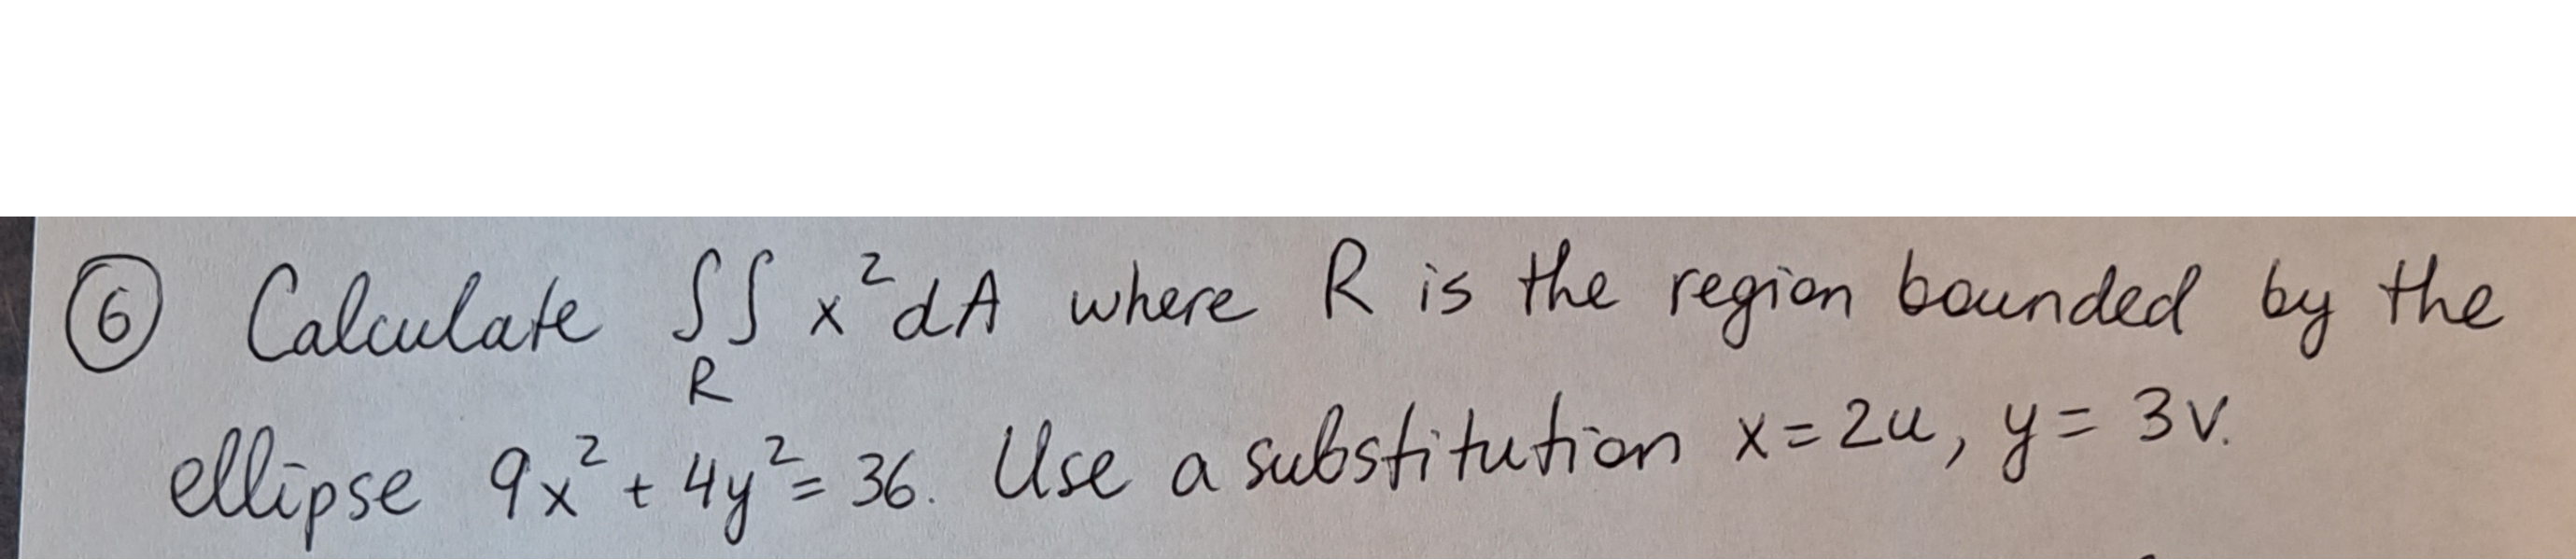 ⑥ Calculate ∫∫ x²dA where R is the region bounded by the
R
ellipse 9x² + 4y² = 36. Use a substitution x = 2u, y = 3v.